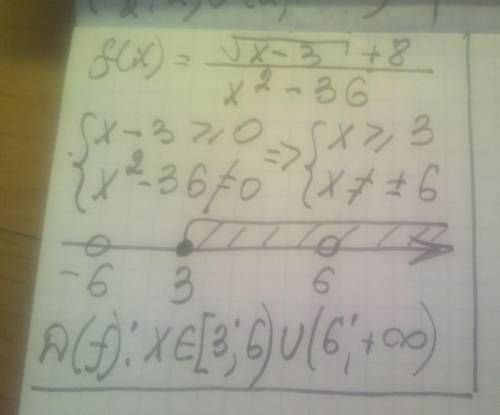 f(x) = (√(x-3) + 8) / (x² - 36)
{x - 3 ≥ 0 => {x ≥ 3
{x² - 36 ≠ 0 {x ≠ ± 6
-6 3 6
D(f): x∈[3;6)∪(6;+∞)